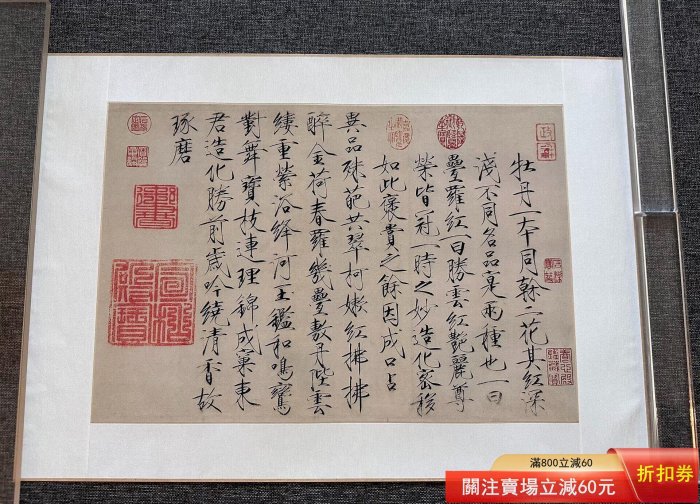 牡丹一本同幹二花其紅深
淺不同名品實兩種也一曰
疊羅紅一曰勝雲紅艷麗尊
榮皆冠一時之妙造化密移
如此褒賞之餘因成口占
異品殊葩共翠柯嫩紅拂拂
醉金荷春羅幾疊敷丹陛雲
縷重縈浴絳河玉鑑和鳴鸞
對舞寶枝連理錦成窠東
君造化勝前歲吟繞清香故
琢磨
滿800立減60
關注賣場立減60元
折扣券